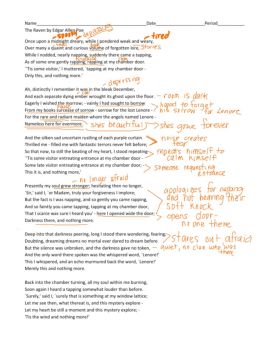 Name Date Period
The Raven by Edgar Allen Poe
spooky
tired
Once upon a midnight dreary, while I pondered weak and weary,
Over many a quaint and curious volume of forgotten lore, stories
While I nodded, nearly napping, suddenly there came a tapping,
As of some one gently rapping, rapping at my chamber door.
'Tis some visitor,' I muttered, 'tapping at my chamber door -
Only this, and nothing more.'
depressing
Ah, distinctly I remember it was in the bleak December,
And each separate dying ember wrought its ghost upon the floor. - room is dark
Eagerly I wished the morrow; - vainly I had sought to borrow
From my books surcease of sorrow - sorrow for the lost Lenore - his sorrow for Lenore
For the rare and radiant maiden whom the angels named Lenore -
Nameless here for evermore. she's beautiful she's gone forever
And the silken sad uncertain rustling of each purple curtain
Thrilled me - filled me with fantastic terrors never felt before; noise creates fear
So that now, to still the beating of my heart, I stood repeating
'Tis some visitor entreating entrance at my chamber door - repeats himself to calm himself
Some late visitor entreating entrance at my chamber door; - someone requests entrance
This it is, and nothing more,'
no longer afraid
Presently my soul grew stronger; hesitating then no longer,
'Sir,' said I, 'or Madam, truly your forgiveness I implore;
But the fact is I was napping, and so gently you came rapping,
And so faintly you came tapping, tapping at my chamber door,
That I scarce was sure I heard you' - here I opened wide the door; -
Darkness there, and nothing more.
apologizes for napping and not hearing their soft knock
opens door - no one there.
Deep into that darkness peering, long I stood there wondering, fearing,
Doubting, dreaming dreams no mortal ever dared to dream before stares out afraid
But the silence was unbroken, and the darkness gave no token,
And the only word there spoken was the whispered word, 'Lenore!'
This I whispered, and an echo murmured back the word, 'Lenore!'
Merely this and nothing more.
Back into the chamber turning, all my soul within me burning,
Soon again I heard a tapping somewhat louder than before.
'Surely,' said I, 'surely that is something at my window lattice;
Let me see then, what thereat is, and this mystery explore -
Let my heart be still a moment and this mystery explore; -
'Tis the wind and nothing more!'